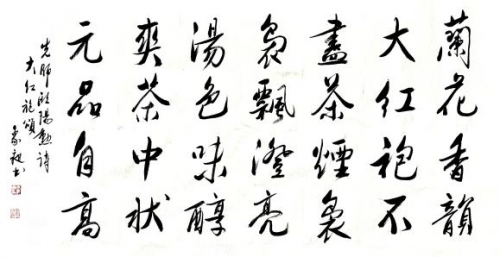 蘭花香韻
大红袍不
盡茶煙裊
裊飄澄亮
湯色味醇
爽茶中狀
元品自高
先師歐陽勳詩
大红袍頌
书